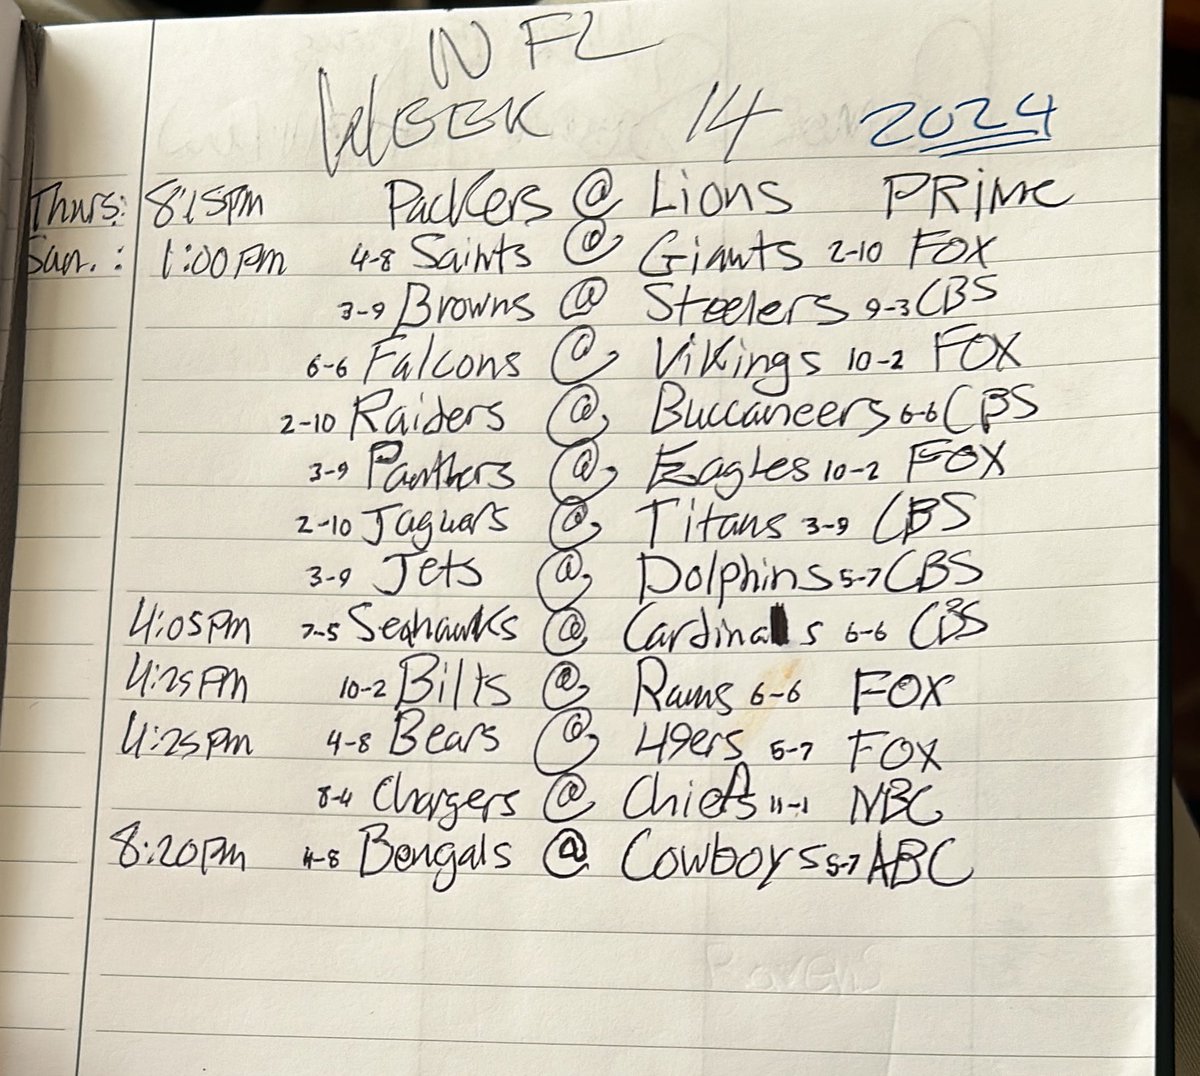 NFL
WEEK 14 2024
Thurs: 8:15pm Packers @ Lions PRiMe
Sun.: 1:00pm 4-8 Saints @ Giants 2-10 FOX
3-9 Browns @ Steelers 9-3 CBS
6-6 Falcons @ Vikings 10-2 FOX
2-10 Raiders @ Buccaneers 6-6 CBS
3-9 Panthers @ Eagles 10-2 FOX
2-10 Jaguars @ Titans 3-9 CBS
3-9 Jets @ Dolphins 5-7 CBS
4:05pm 7-5 Seahawks @ Cardinals 6-6 CBS
4:25pm 10-2 Bills @ Rams 6-6 FOX
4:25pm 4-8 Bears @ 49ers 5-7 FOX
8-4 Chargers @ Chiefs 11-1 NBC
8:20pm 4-8 Bengals @ Cowboys 5-7 ABC